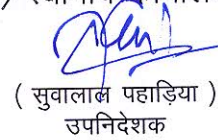 ( सुवालाल पहाड़िया )
उपनिदेशक